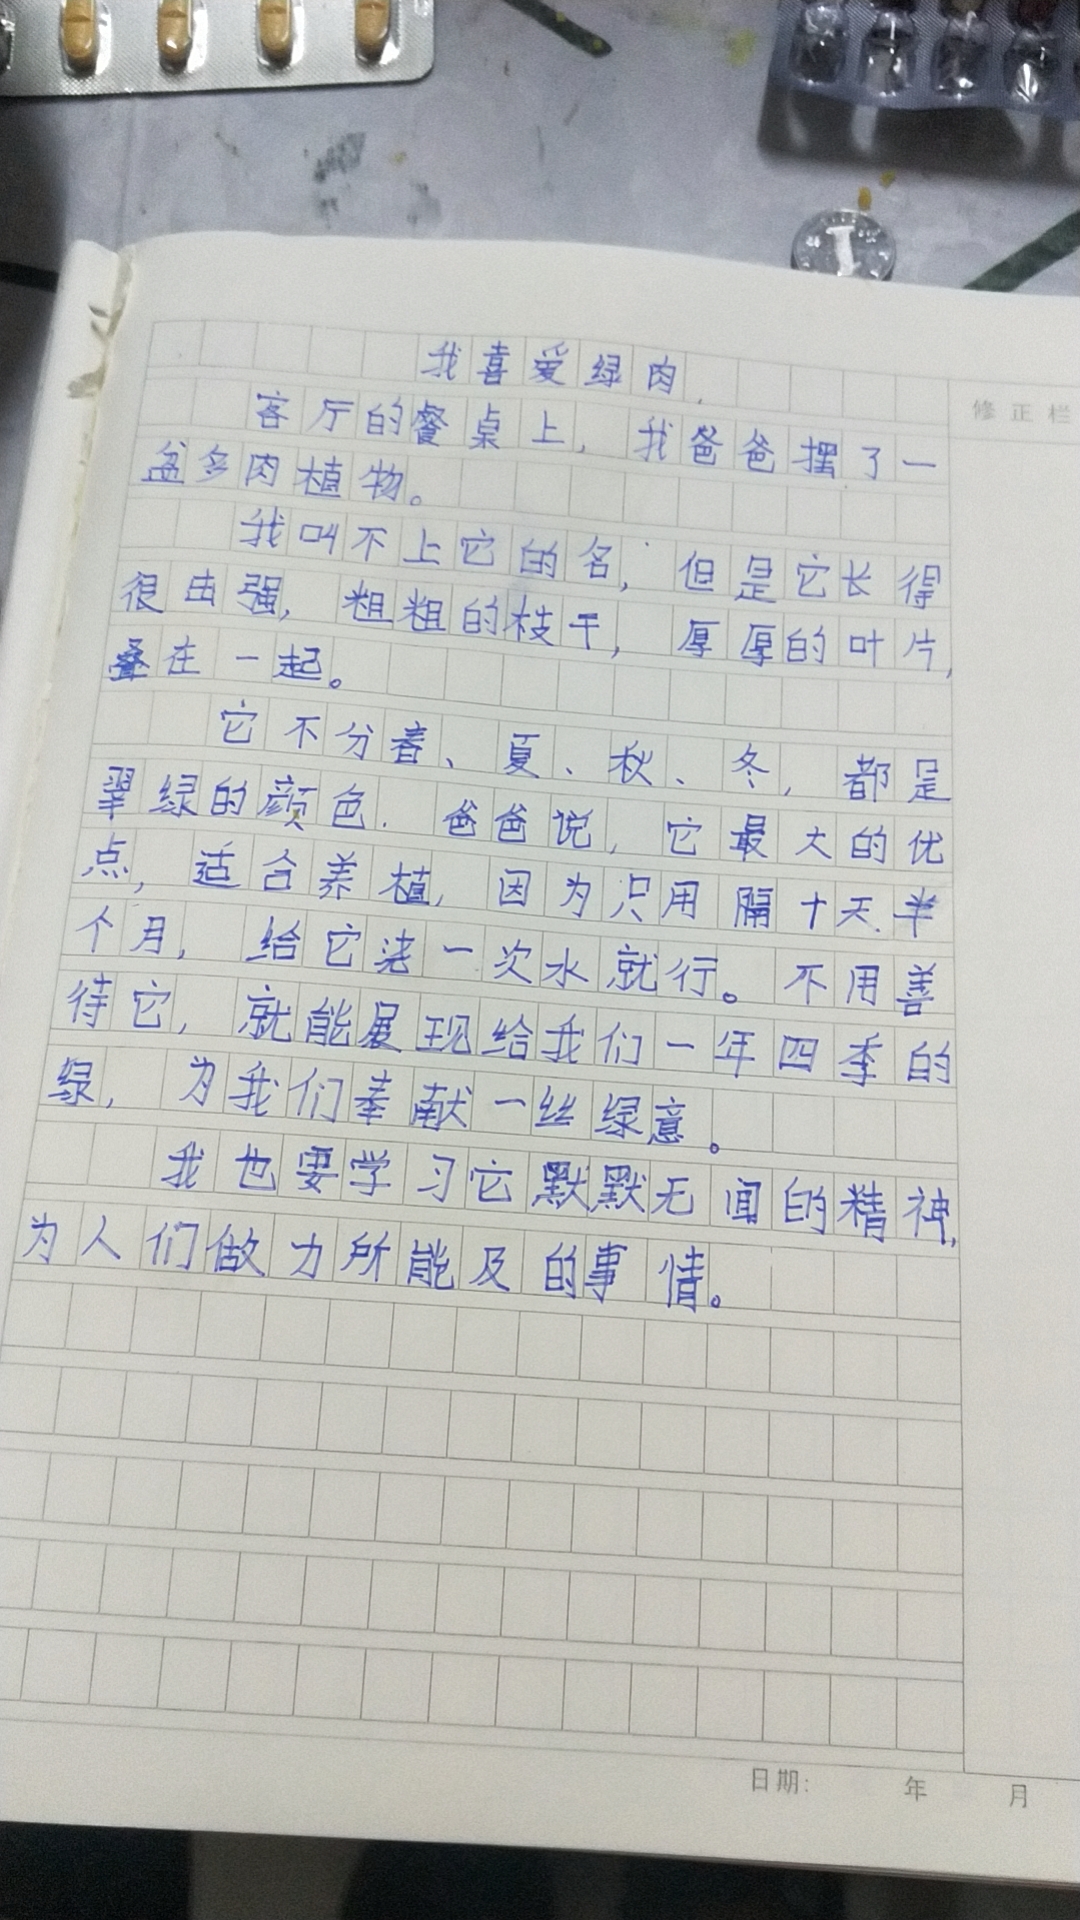 我喜爱绿肉.
修正栏
客厅的餐桌上，我爸爸摆了一
盆多肉植物。
我叫不上它的名，但是它长得
很由强，粗粗的枝干，厚厚的叶片，
叠在一起。
它不分春、夏、秋、冬，都是
翠绿的颜色.爸爸说，它最大的优
点，适合养植，因为只用隔十天半
个月，给它浇一次水就行。不用善
待它，就能展现给我们一年四季的
绿，为我们奉献一丝绿意。
我也要学习它默默无闻的精神，
为人们做力所能及的事情。
日期： 年 月